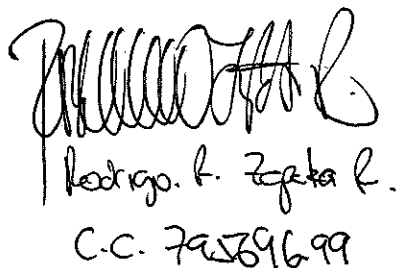 Rodrigo. R. Zapata R.
C.C. 79.569699